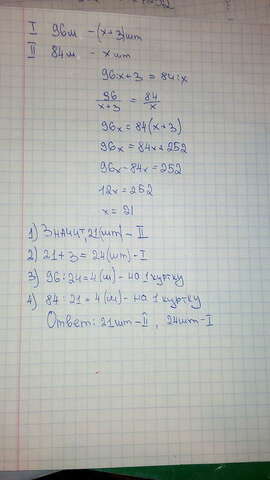 I 96м - (x+3)шт
II 84м - x шт
96:x+3 = 84:x
96/x+3 = 84/x
96x = 84(x+3)
96x = 84x+252
96x-84x = 252
12x = 252
x = 21
1) Значит, 21(шт) - II
2) 21+3 = 24(шт) - I
3) 96:24=4(м) - на 1 куртку
4) 84:21=4(м) - на 1 куртку
Ответ: 21шт-II, 24шт-I